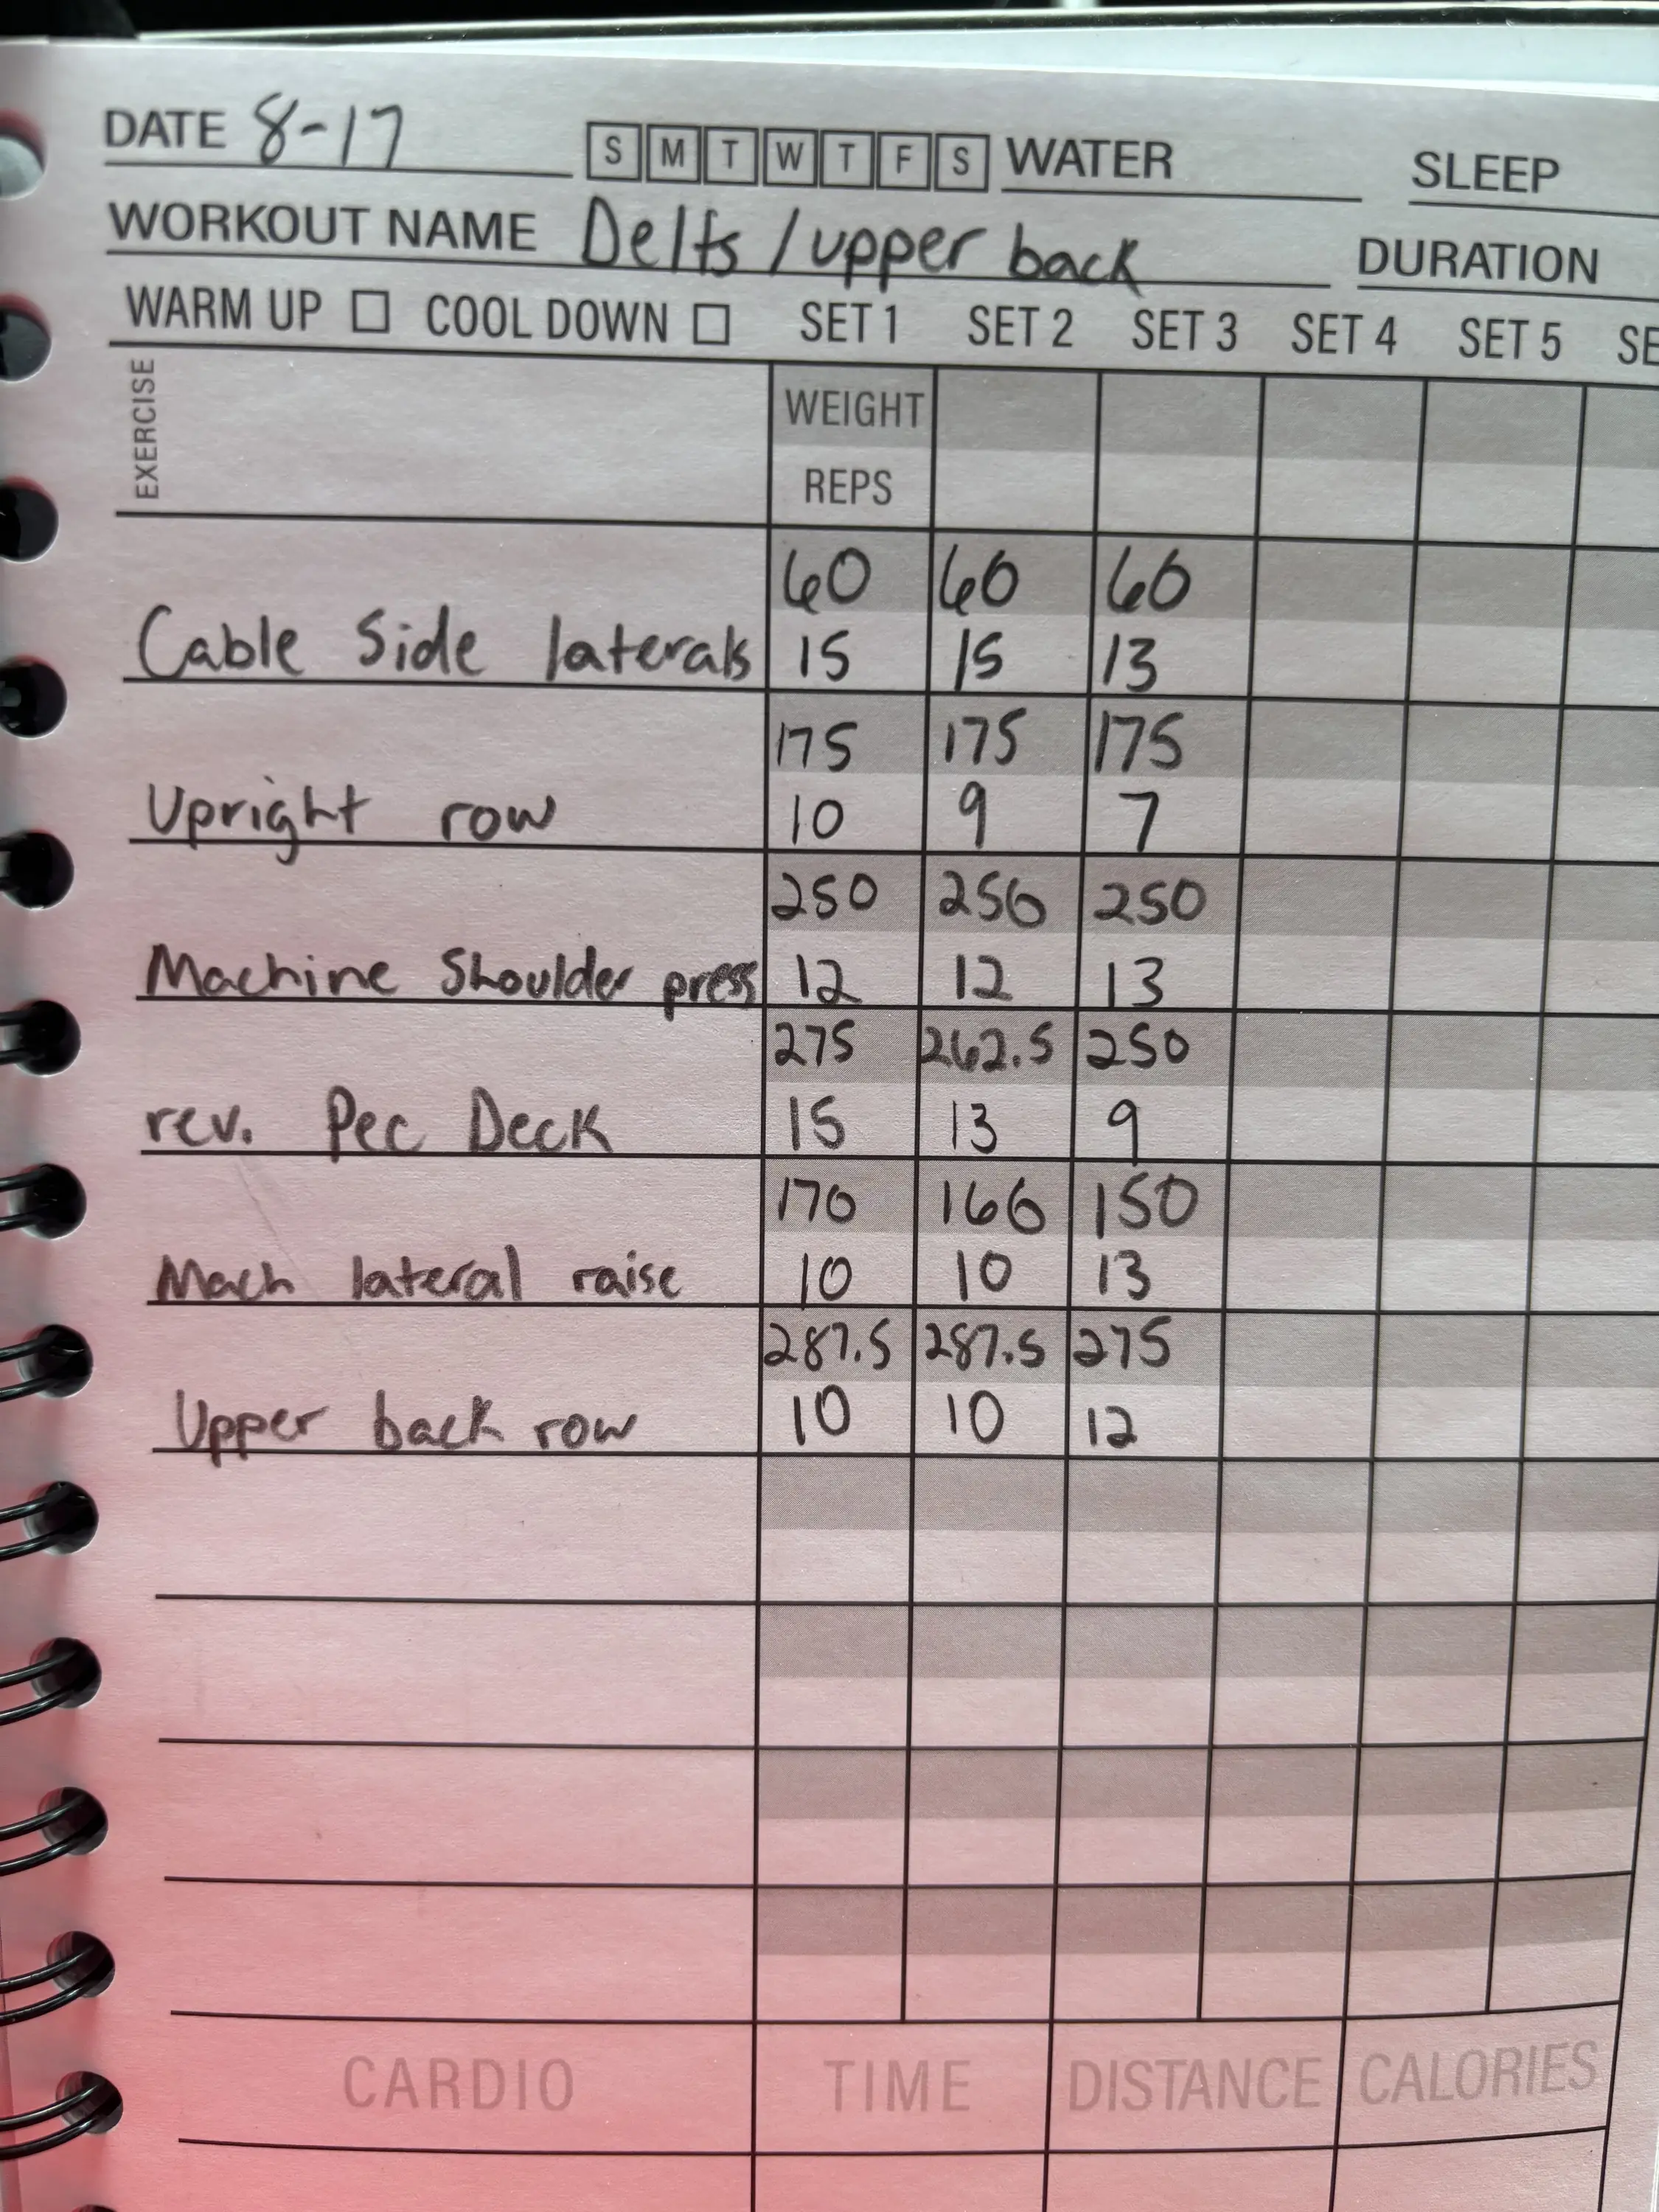 DATE 8-17 S M T W T F S WATER SLEEP
WORKOUT NAME Delts / upper back DURATION
WARM UP COOL DOWN SET 1 SET 2 SET 3 SET 4 SET 5 SE
EXERCISE WEIGHT
REPS
60 60 60
Cable Side laterals 15 15 13
175 175 175
Upright row 10 9 7
250 250 250
Machine Shoulder press 12 12 13
275 262.5 250
rev. Pec Deck 15 13 9
170 160 150
Mach lateral raise 10 10 13
287.5 287.5 275
Upper back row 10 10 12
CARDIO TIME DISTANCE CALORIES